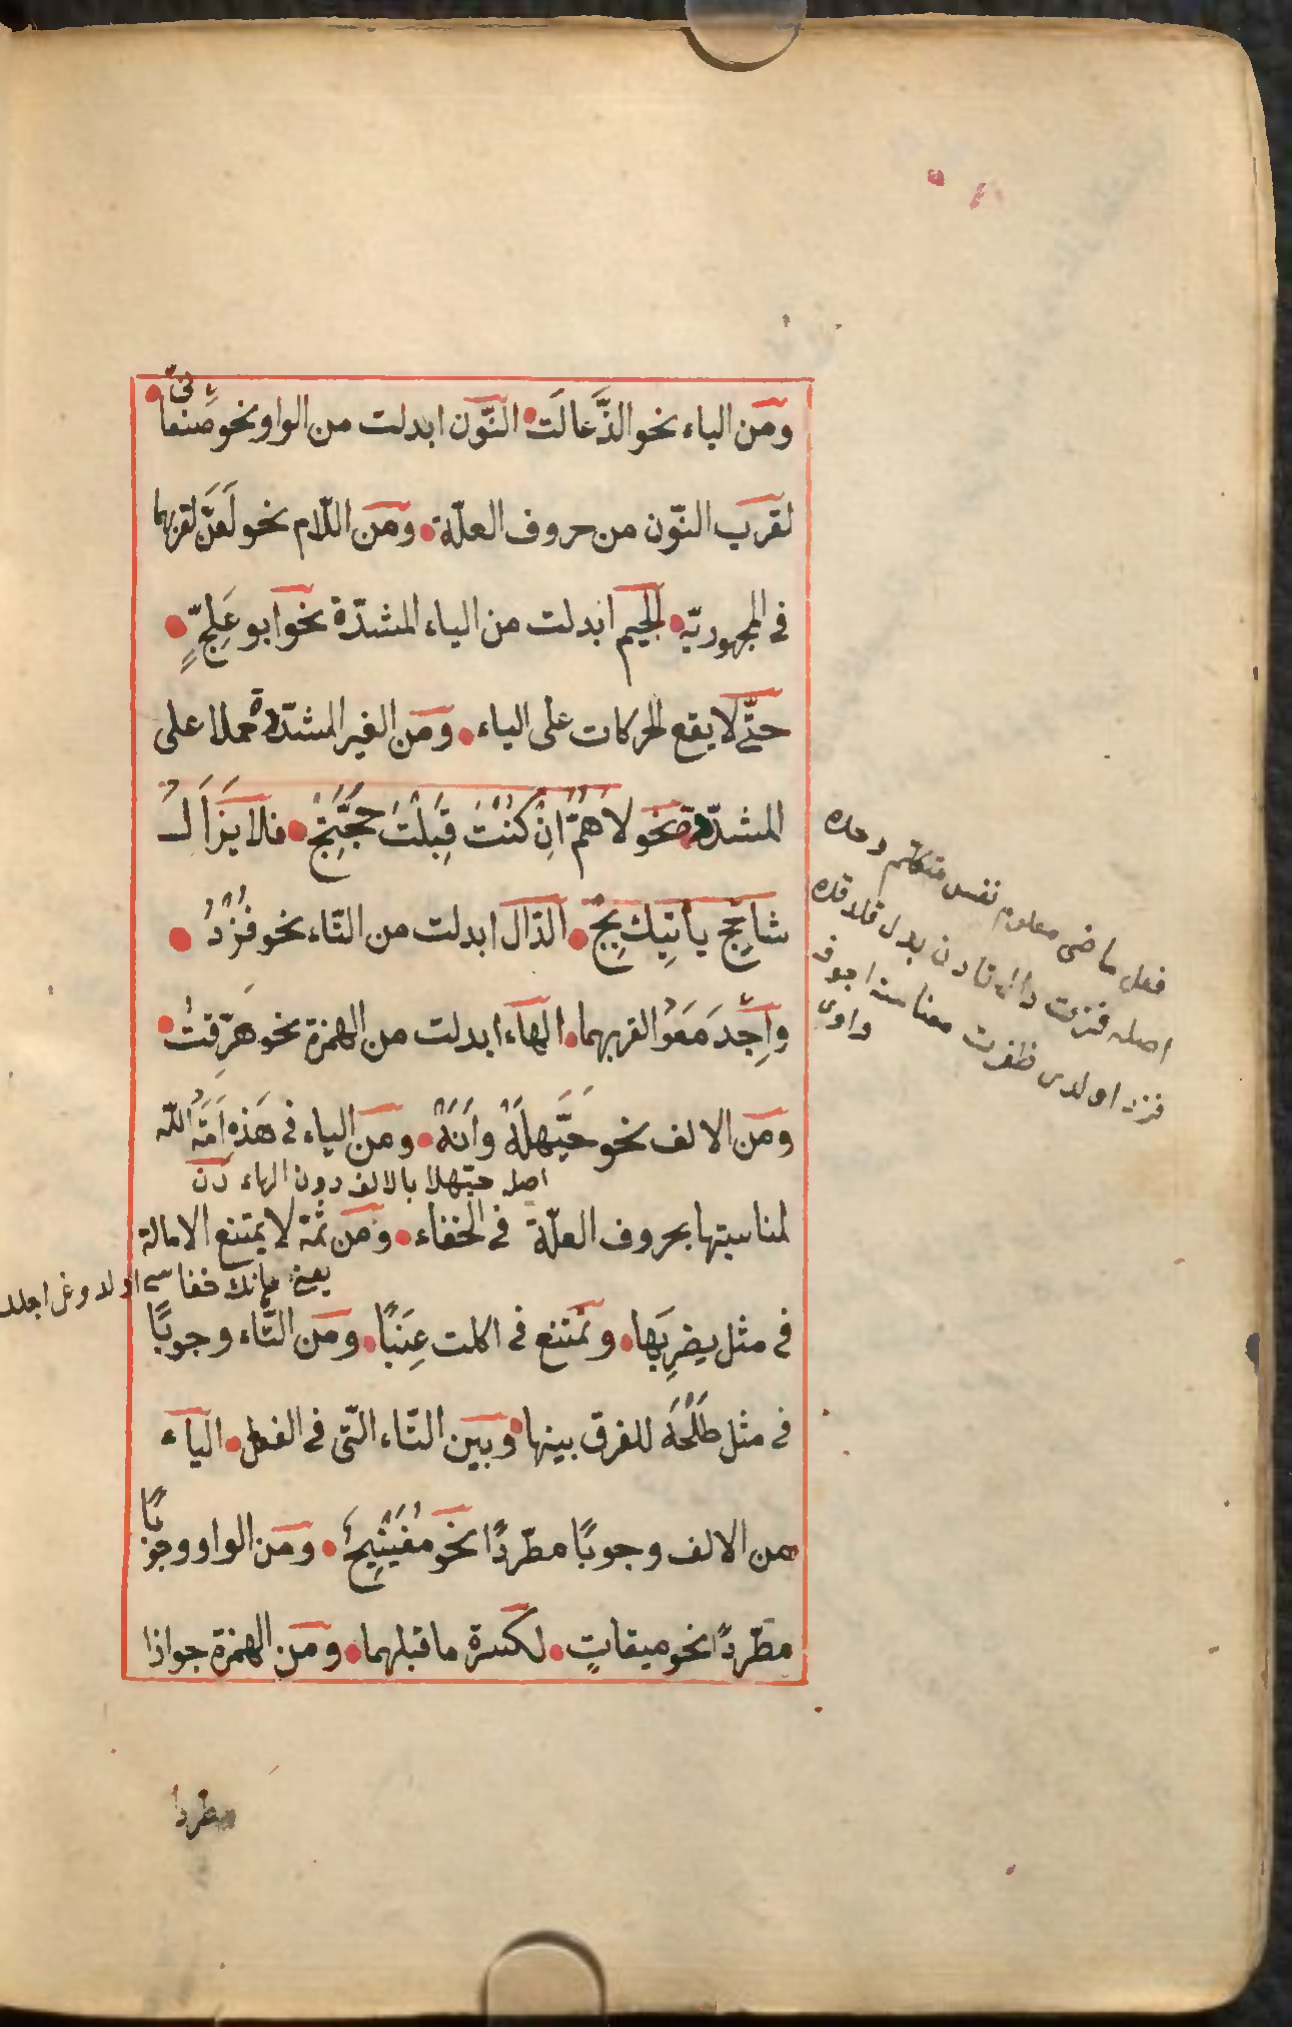 ومن الباء نحو الذَّعالَت النّون ابدلت من الواو نحو صنعانىّ
لقرب النّون من حروف العلّة ومن اللّام نحو لَعَنَّ لقربهما
فى المجهوريّه الجيم ابدلت من الياء المشدّدة نحو ابو عَلِجٍّ
حتّى لا يقع الحركات على الياء ومن الغير المشدّدة حملا على
المشدّدة نحو لاهُمَّ اِنْ كُنْتَ قَبِلْتَ حَجَّتِجْ فلا يَزَالُ
شاحِجٌ يأتيك بِجْ الدّال ابدلت من التّاء نحو فُزْدُ
واِجْدَمَعُوا لقربهما الهاء ابدلت من الهمزة نحو هَرَقتُ
ومن الالف نحو حَيَّهلَهْ واَنَهْ ومن الياء فى هَذِهِ اَمَةُ اللّه
اصله حيّهلا بالالف دون الهاء
لمناسبتها بحروف العلّة فى الخفاء ومن ثَمّة لا يمتنع الامالة
فى مثل يضرِبَها وتمتنع فى اكلت عِنَبًا ومن التّاء وجوبًا
فى مثل طَلْحَهْ للفرق بينها وبين التّاء الّتى فى الفعل الياء
من الالف وجوبًا مطّردًا نحو مُفَيْتِيحٌ ومن الواو وجوبًا
مطّردًا نحو ميقاتٍ لكسرة ما قبلهما ومن الهمزة جوازا
مطردا
فعل ماضى معلوم نفس متكلم وحده
اصله فزت دال تادن بدل قلدقده
فزد اولدى ظفرت معناسنه اجوف
واوى